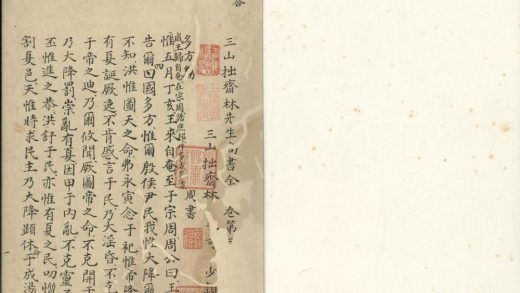 三山拙齋林先生尚書全 卷第
三山拙齋林 少
多方 周書
成王歸自奄在宗周誥庶邦作多方多方
惟五月丁亥王來自奄至于宗周周公曰王
告爾四國多方惟爾殷侯尹民我惟大降爾
不知洪惟圖天之命弗永寅念于祀惟帝降
有夏誕厥逸不肯慼言于民乃大淫昏不克
于帝之迪乃爾攸聞厥圖帝之命不克開于
乃大降罰崇亂有夏因甲于內亂不克靈
丕惟進之恭洪舒于民亦惟有夏之民叨懫
割夏邑天惟時求民主乃大降顯休命于成湯